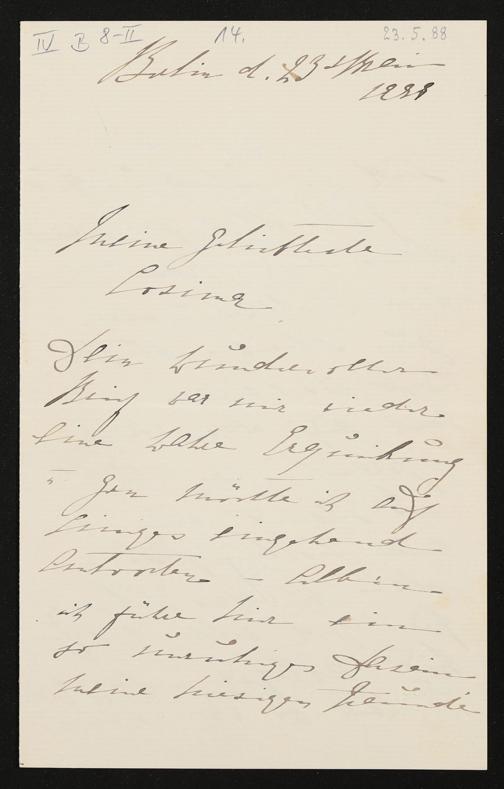 IV B 8-II 14. 23.5.88
Berlin d. 23 Mai
1888
Meine geliebteste
Cosima
Dein wundervoller
Brief war mir wieder
eine wahre Erquickung
u gern möchte ich auf
Einiges eingehend
Antworten – Allein
ich führe hier ein
so unruhiges Dasein
meine hiesigen Freunde